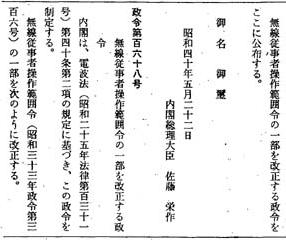 無線従事者操作範囲令の一部を改正する政令を
ここに公布する。
御名 御璽
昭和四十年五月二十二日
内閣総理大臣 佐藤 栄作
政令第百六十八号
無線従事者操作範囲令の一部を改正する政
令
内閣は、電波法（昭和二十五年法律第百三十一
号）第四十条第二項の規定に基づき、この政令を
制定する。
無線従事者操作範囲令（昭和三十三年政令第三
百六号）の一部を次のように改正する。